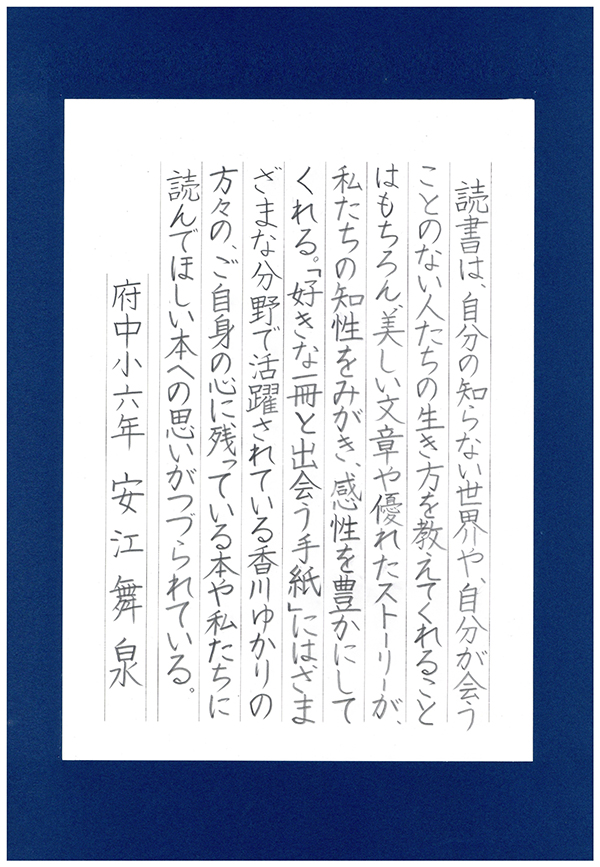 読書は、自分の知らない世界や、自分が会う
ことのない人たちの生き方を教えてくれること
はもちろん、美しい文章や優れたストーリーが、
私たちの知性をみがき、感性を豊かにして
くれる。「好きな一冊と出会う手紙」にはざま
ざまな分野で活躍されている香川ゆかりの
方々の、ご自身の心に残っている本や私たちに
読んでほしい本への思いがつづられている。
府中小六年 安江舞泉